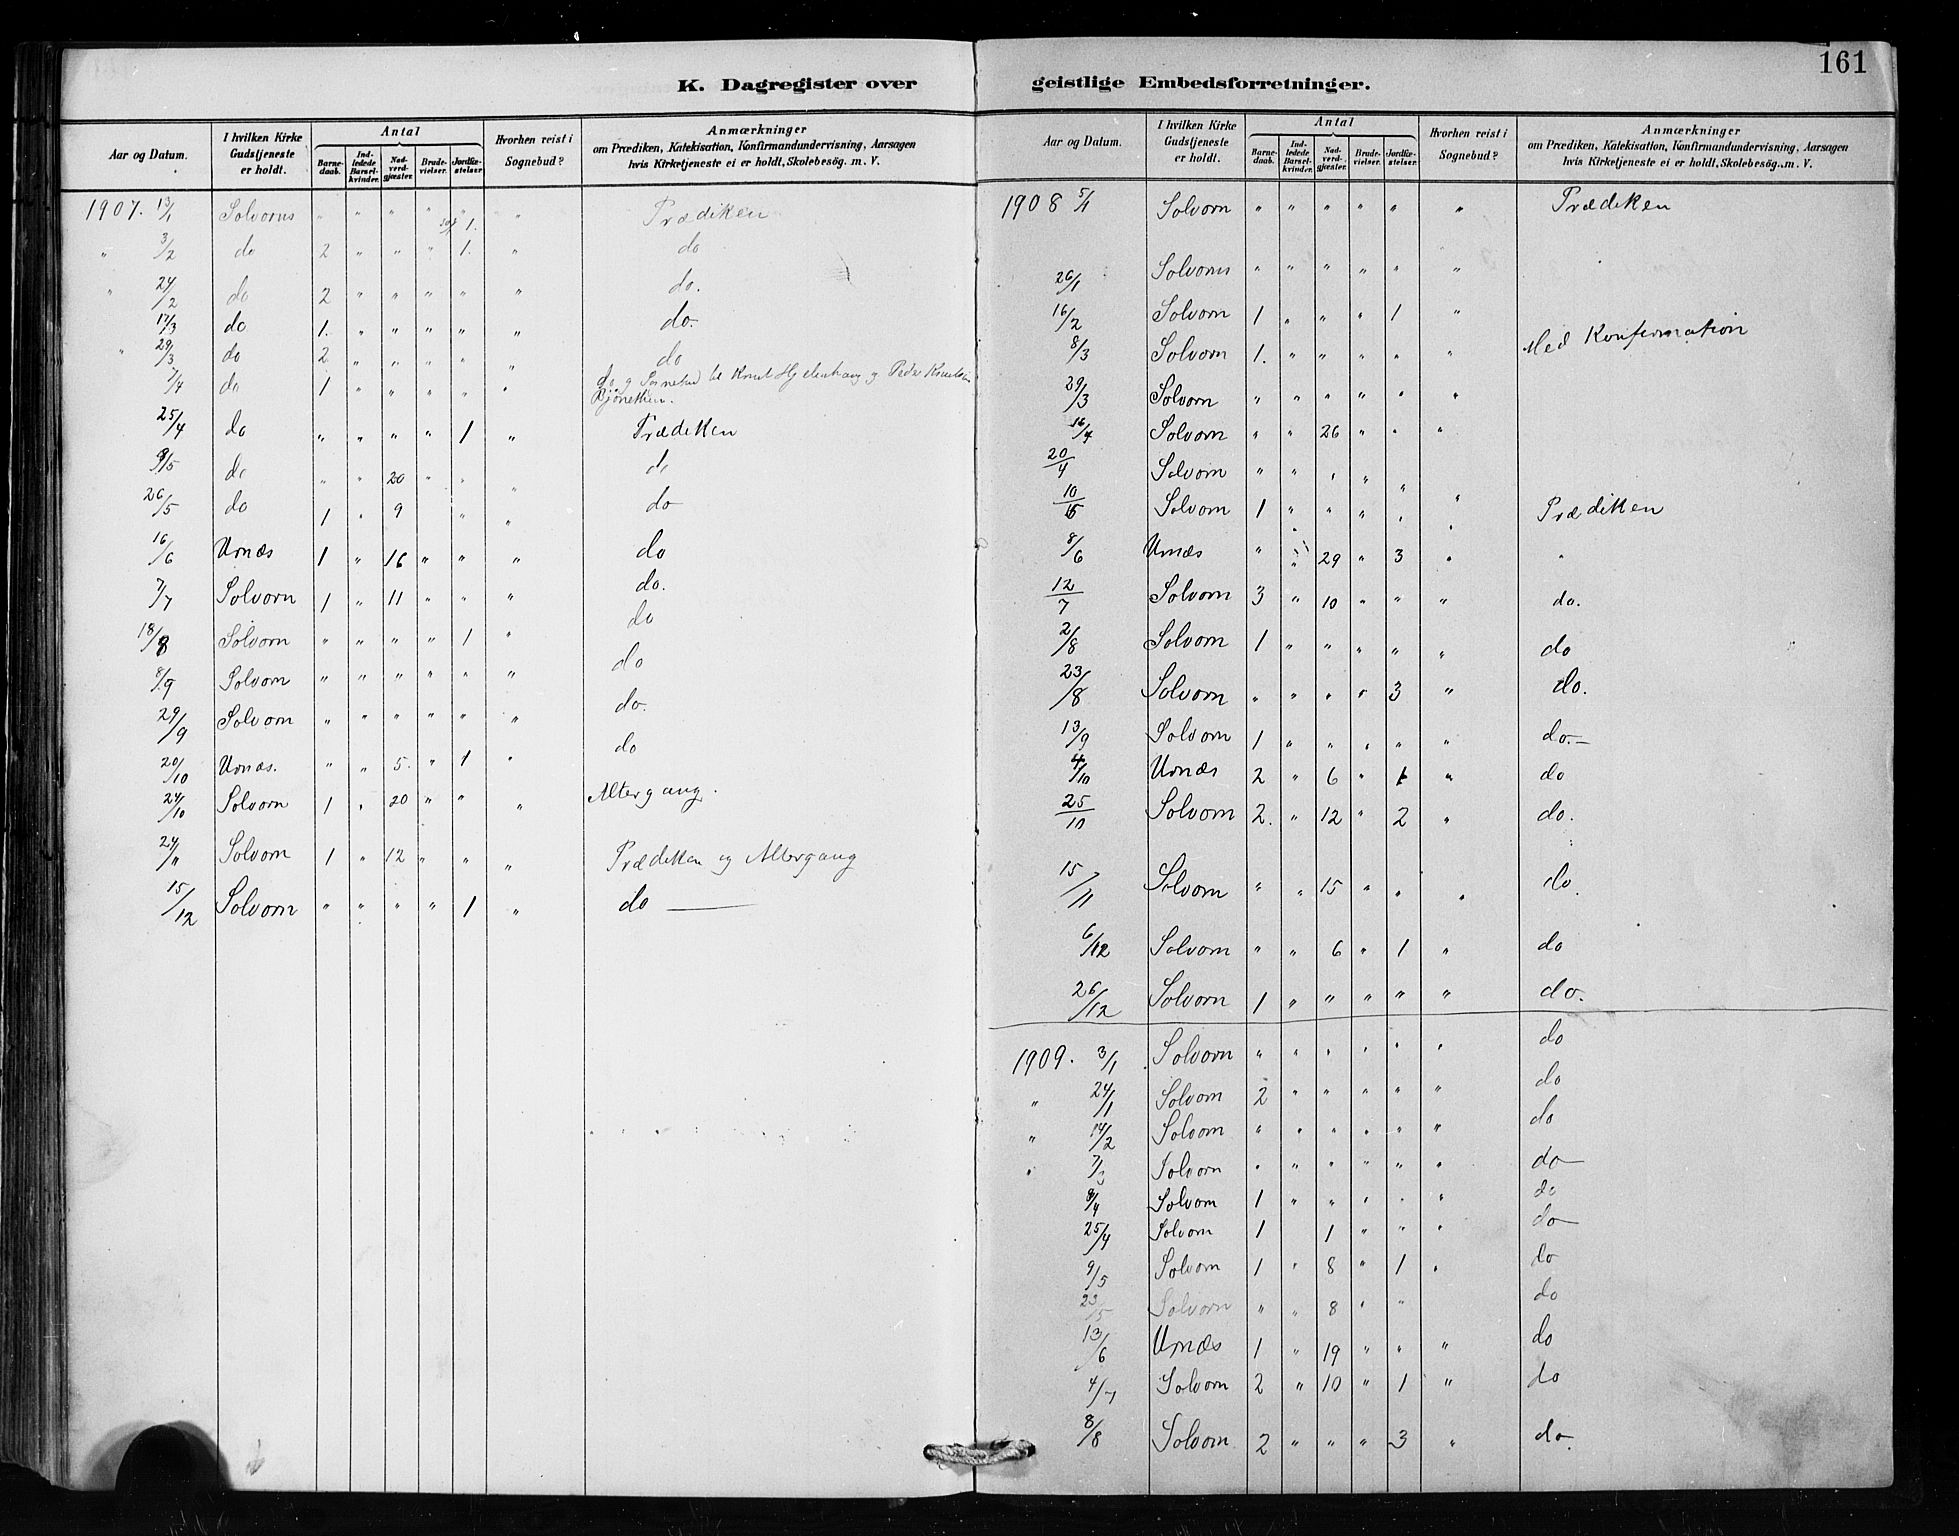 161
K. Dagregister over geistlige Embedsforretninger.
Aar og Datum. | I hvilken Kirke Gudstjeneste er holdt. | Antal | Barne-daab. | Ind-ledede Barsel-kvinder. | Nad-verd-gjæster. | Brude-vielser. | Jordfæ-stelser | Hvorhen reist i Sognebud? | Anmærkninger om Prædiken, Katekisation, Konfirmandundervisning, Aarsagen hvis Kirketjeneste ei er holdt, Skolebesög. m. V.
1907. 13/1 Solvorns " " " " 1. " Prædiken
" 3/2 do 2 " " " 1. " do
" 24/2 do 2 " " " " " do.
17/3 do 1. " " " " " do.
" 29/3 do 2 " " " " " do
7/4 do 1 " " " " " do. og Sognebud til Knut og Peder
25/4 do " " " " 1 " Prædiken
9/5 do " " 20 " " " do
26/5 do 1 " 9 " " do
16/6 Urnæs 1 " 16 " " " do
7/7 Solvorn 1 " 11 " " " do.
18/8 Solvorn " " " " 1 " do
8/9 Solvorn " " " " " " do
29/9 Solvorn " " " " " " do.
20/10 Urnæs. " " 5. " 1 " do
24/10 Solvorn 1 " 20 " " " Altergang.
24/11 Solvorn 1 " 12 " " " Prædiken og Altergang
15/12 Solvorn " " " " 1 " do ——
Aar og Datum. | I hvilken Kirke Gudstjeneste er holdt. | Antal | Barne-daab. | Ind-ledede Barsel-kvinder. | Nad-verd-gjæster. | Brude-vielser. | Jordfæ-stelser | Hvorhen reist i Sognebud? | Anmærkninger om Prædiken, Katekisation, Konfirmandundervisning, Aarsagen hvis Kirketjeneste ei er holdt, Skolebesög. m. V.
1908 5/1 Solvorn " " " " " " Prædiken
26/1 Solvorns " " " " " "
16/2 Solvorn 1 " " " 1 "
8/3 Solvorn 1. " " " " " Med Konfirmation
29/3 Solvorn " " " " " "
16/4 Solvorn " " 26 " " "
20/4 Solvorn " " " " "
10/5 Solvorn 1 " " " " " Prædiken
8/6 Urnæs " " 29 " 3 " "
12/7 Solvorn 3 " 10 " " " do.
2/8 Solvorn 1 " " " " " do
23/8 Solvorn " " " " 3 " do.
13/9 Solvorn 1 " " " " " do.—
4/10 Urnæs 2 " 6 " 1 " do
25/10 Solvorn 2. " 12 " 2 " do.
15/11 Solvorn " " 15 " " " do.
6/12 Solvorn " " 6 " 1 " do
26/12 Solvorn 1 " " " " " do.
1909. 3/1 Solvorn " " " " " " do
" 24/1 Solvorn 2 " " " " " do
" 14/2 Solvorn " " " " " " do
" 7/3 Solvorn " " " " " " do
8/4 Solvorn 1 " " " " " do
25/4 Solvorn 1 1 " " " do
9/5 Solvorn 1 " 8 " 1 " do
23/5 Solvorn " " 8 " " do
13/6 Urnæs 1 " 19 " " " do
4/7 Solvorn 2 " 10 " 1 " do
8/8 Solvorn 2 " " " 3 " do.